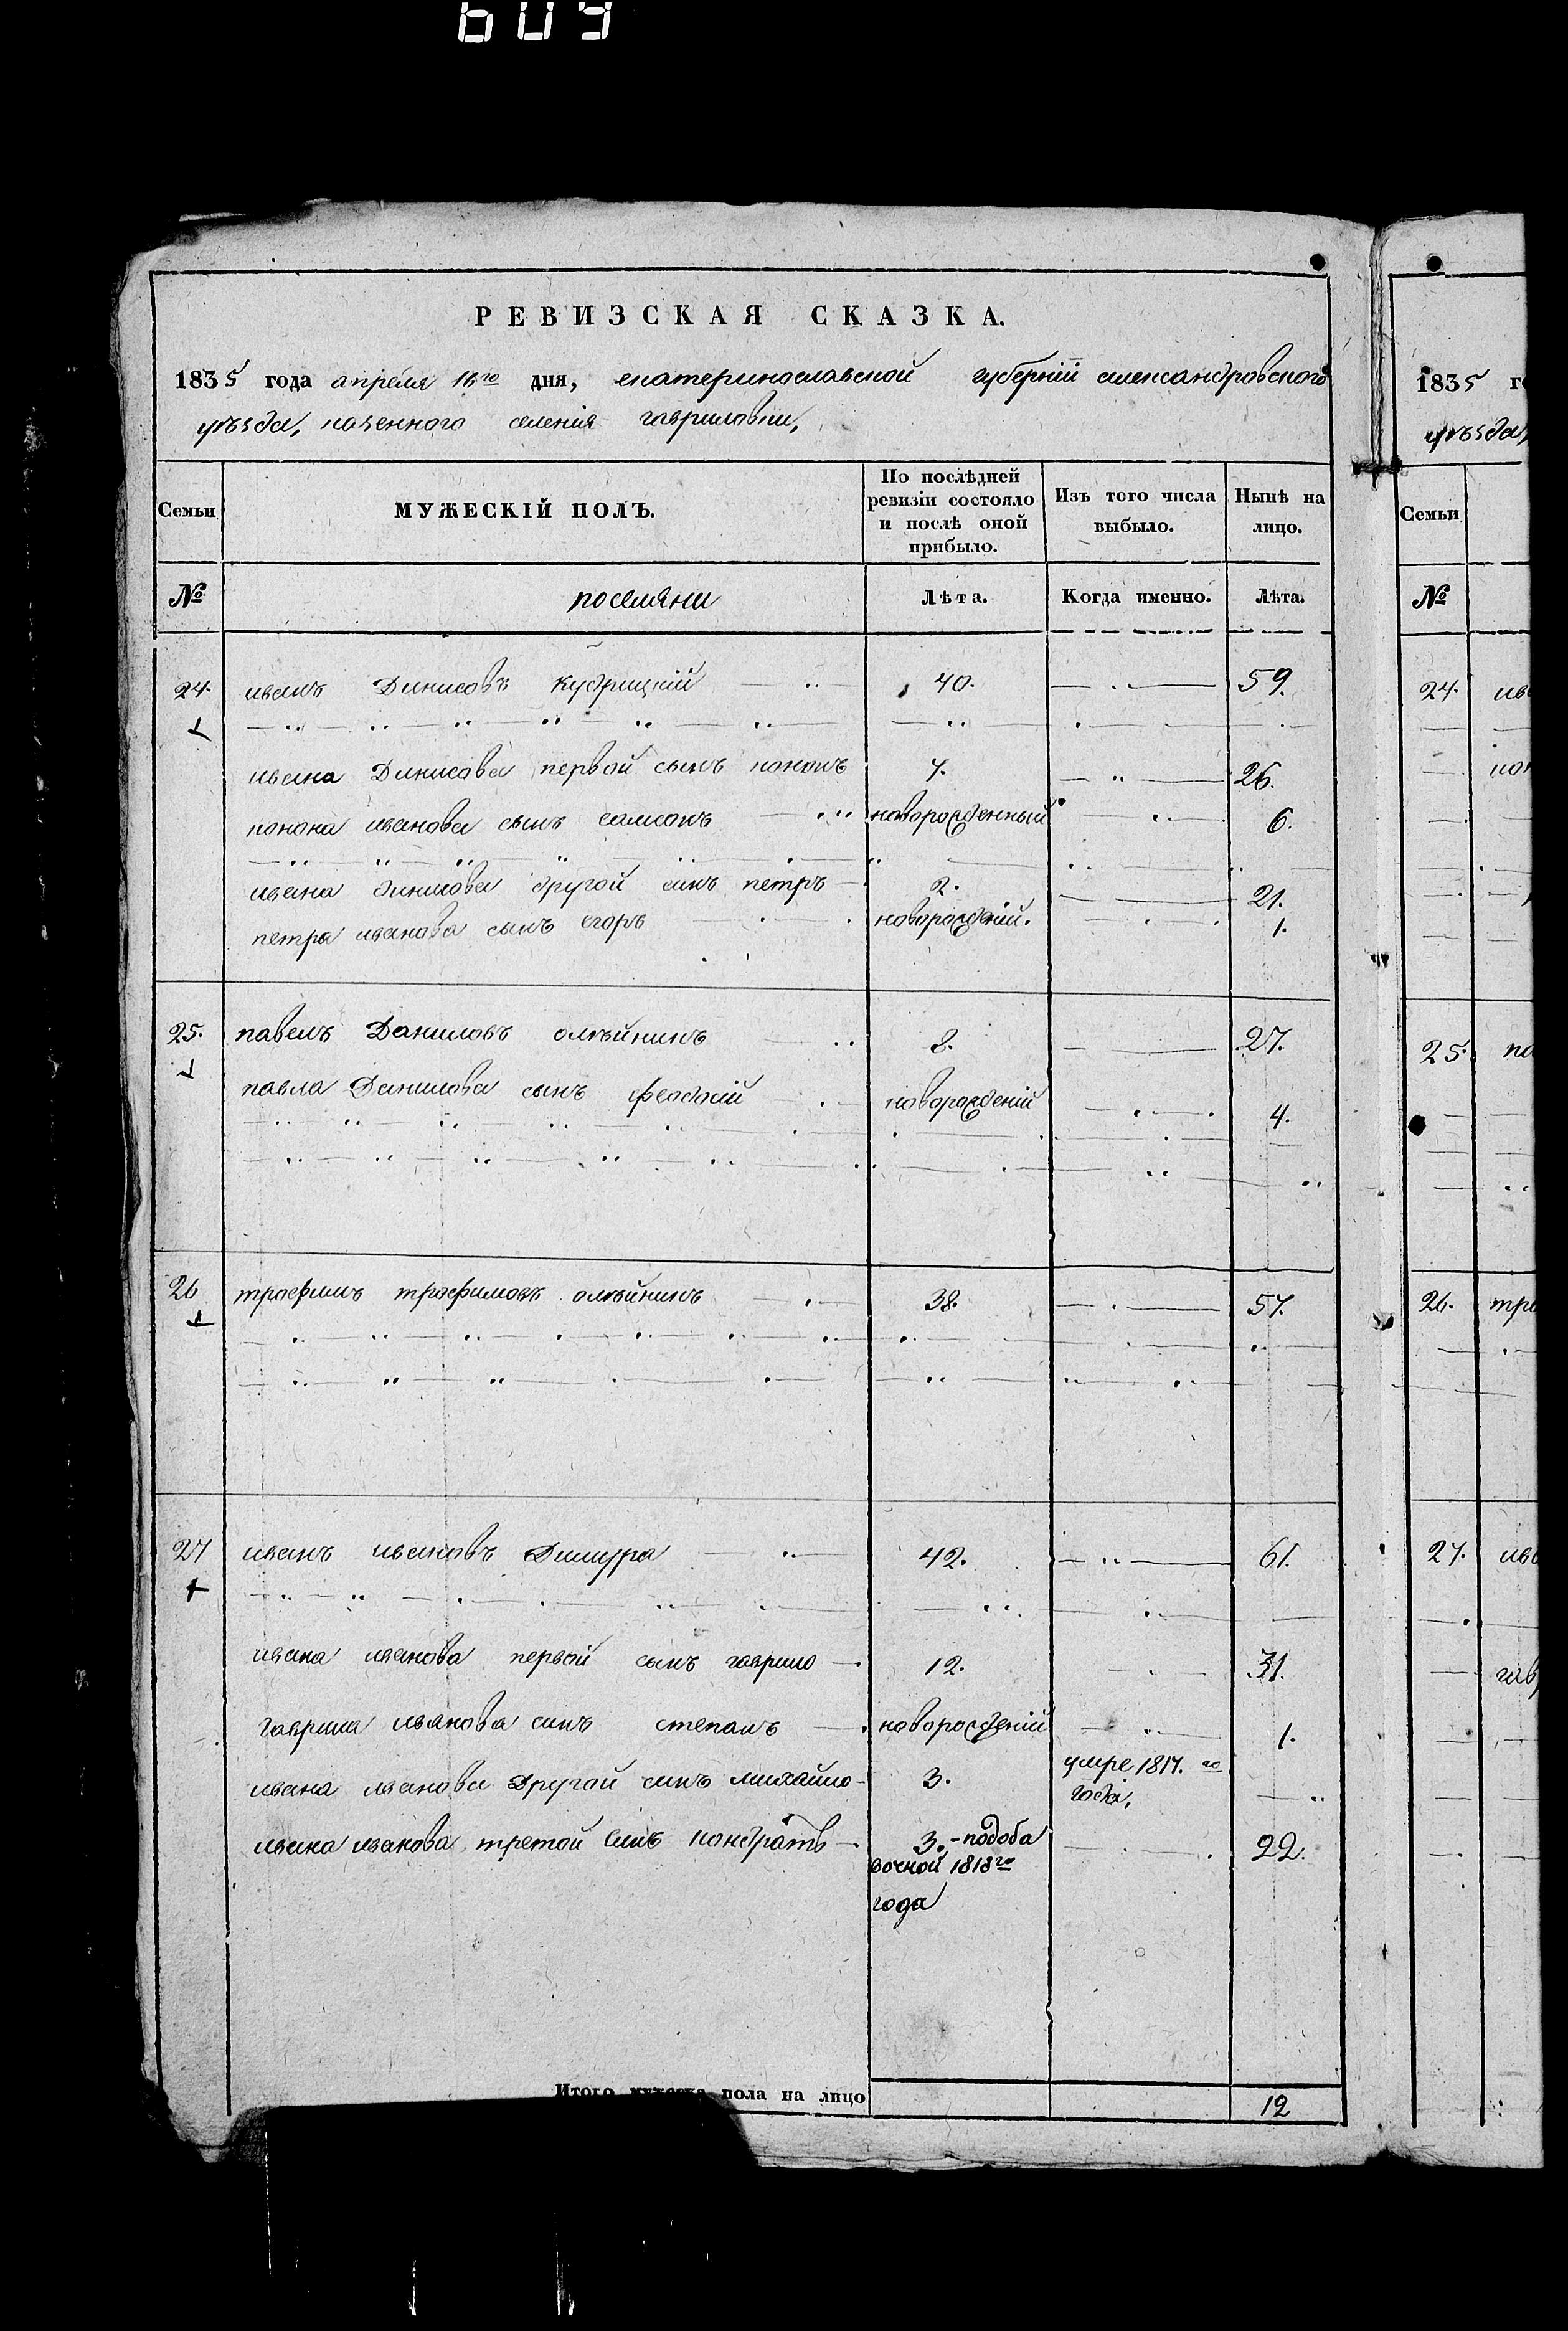 609
РЕВИЗСКАЯ СКАЗКА.
1835 года апреля 16го дня, екатеринославской губерніи александровского
уѣзда, казенного селенія гавриловки,
Семьи
МУЖЕСКІЙ ПОЛЪ.
По послѣдней ревизіи состояло и послѣ оной прибыло.
Изъ того числа выбыло.
Нынѣ на лицо.
№ поселяни Лѣта. Когда именно. Лѣта.
24. иванъ Динисовъ Кудрицкій 40. 59.
ивана Динисова первой сынъ кононъ 7. 26.
конона иванова сынъ самсонъ новорожденный 6.
ивана динисова другой синъ петръ 2. 21.
петра иванова сынъ егоръ новорожденій. 1.
25. павелъ Даниловъ олѣйникъ 8. 27.
павла Данилова сынъ феодосій новорожденій 4.
26 трофимъ трофимовъ олѣйникъ 38. 57.
27 иванъ ивановъ Димура 42. 61.
ивана иванова первой сынъ гаврило 12. 31.
гаврила иванова синъ степанъ новорожденій 1.
ивана иванова Другой синъ михайло 3. умре 1817. го
года,
ивана иванова третой синъ кондратъ 3. - подоба 22.
вочной 1818го
года
Итого мужеска пола на лицо 12
1835 го
уѣзда,
Семьи
№
24. ива
кон
25. па
26. тро
27. ива
гав